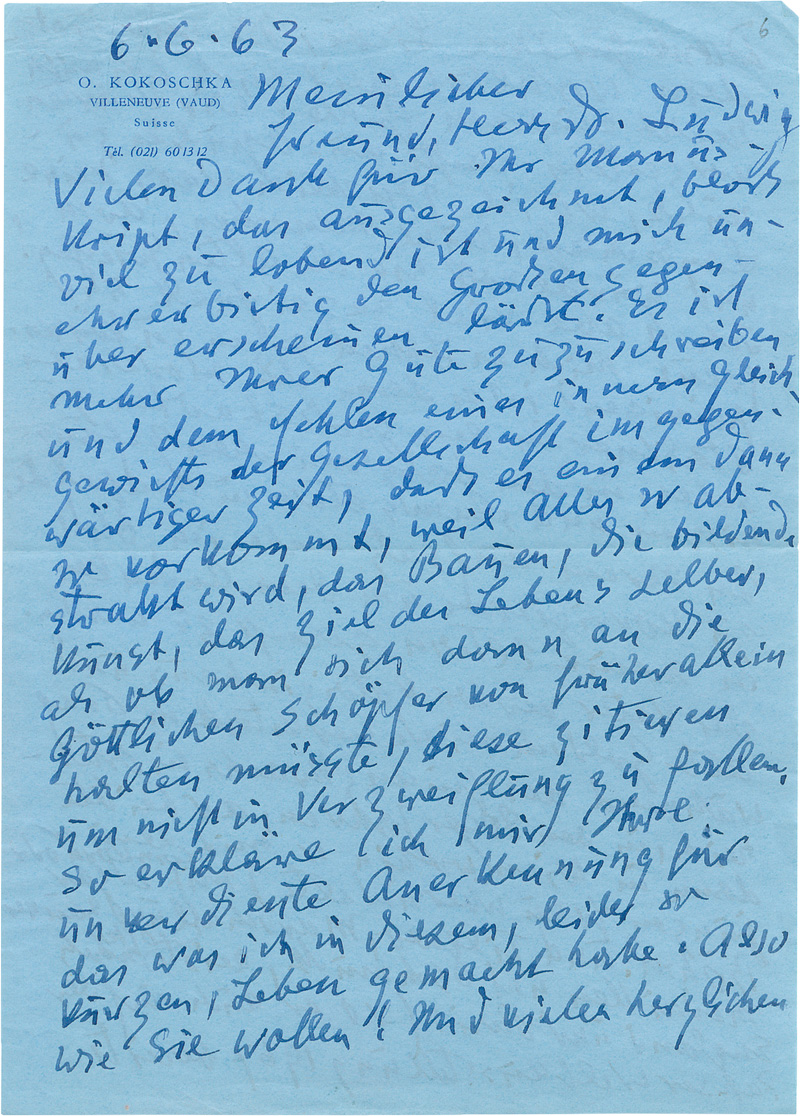 6
6.6.63
O. KOKOSCHKA
VILLENEUVE (VAUD)
Suisse
Tél. (021) 60 13 12
Mein lieber
Freund, Herr Dr. Ludwig
Vielen Dank für Ihr Manus-
kript, das ausgezeichnet, bloß
viel zu lobend ist und mich un-
ehrerbietig den Großen gegen-
über erscheinen läßt. Es ist
mehr Ihrer Güte zuzuschreiben
und dem Fehlen eines innern Gleich-
gewichts der Gesellschaft im gegen-
wärtiger Zeit, daß es einem dann
so vorkommt, weil alles so ab-
strakt wird, das Bauen, die bildende
Kunst, das Ziel des Lebens selber,
als ob man sich dann an die
göttlichen Schöpfer von früher allein
halten müsste, diese zitieren
um nicht in Verzweiflung zu fallen.
So erkläre ich mir Ihre
unverdiente Anerkennung für
das was ich in diesem, leider so
kurzen, Leben gemacht habe. Also
wie Sie wollen! Und vielen herzlichen